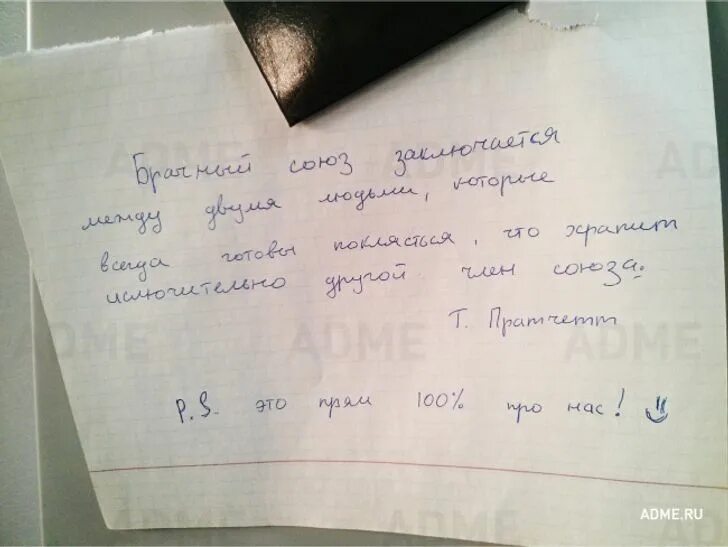 Брачный союз заключается
между двумя людьми, которые
всегда готовы поклясться, что храпит
исключительно другой член союза.
Т. Пратчетт
P.S. это прям 100% про нас!
ADME
ADME
ADME
ADME
ADME
ADME
ADME
ADME.RU